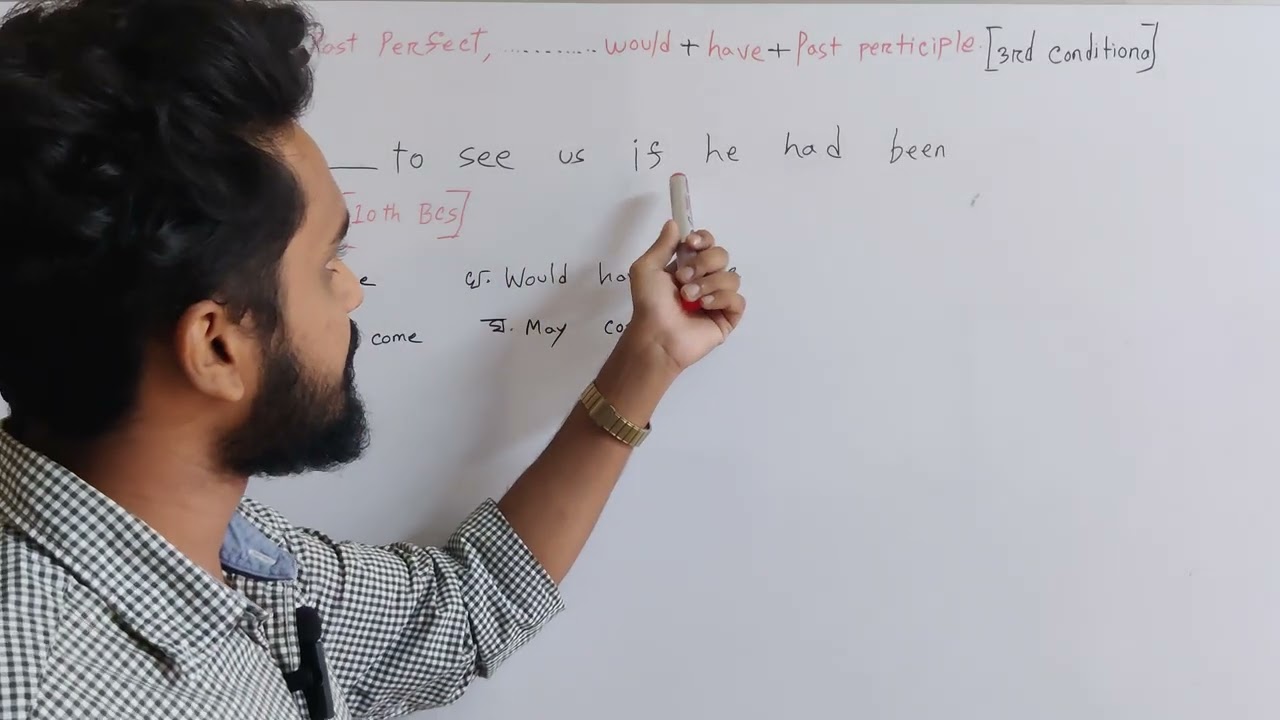 Past Perfect, ........... would + have + Past perticiple. [3rd conditional]
___ to see us if he had been
[10th BCS]
খ. Would
come ঘ. May